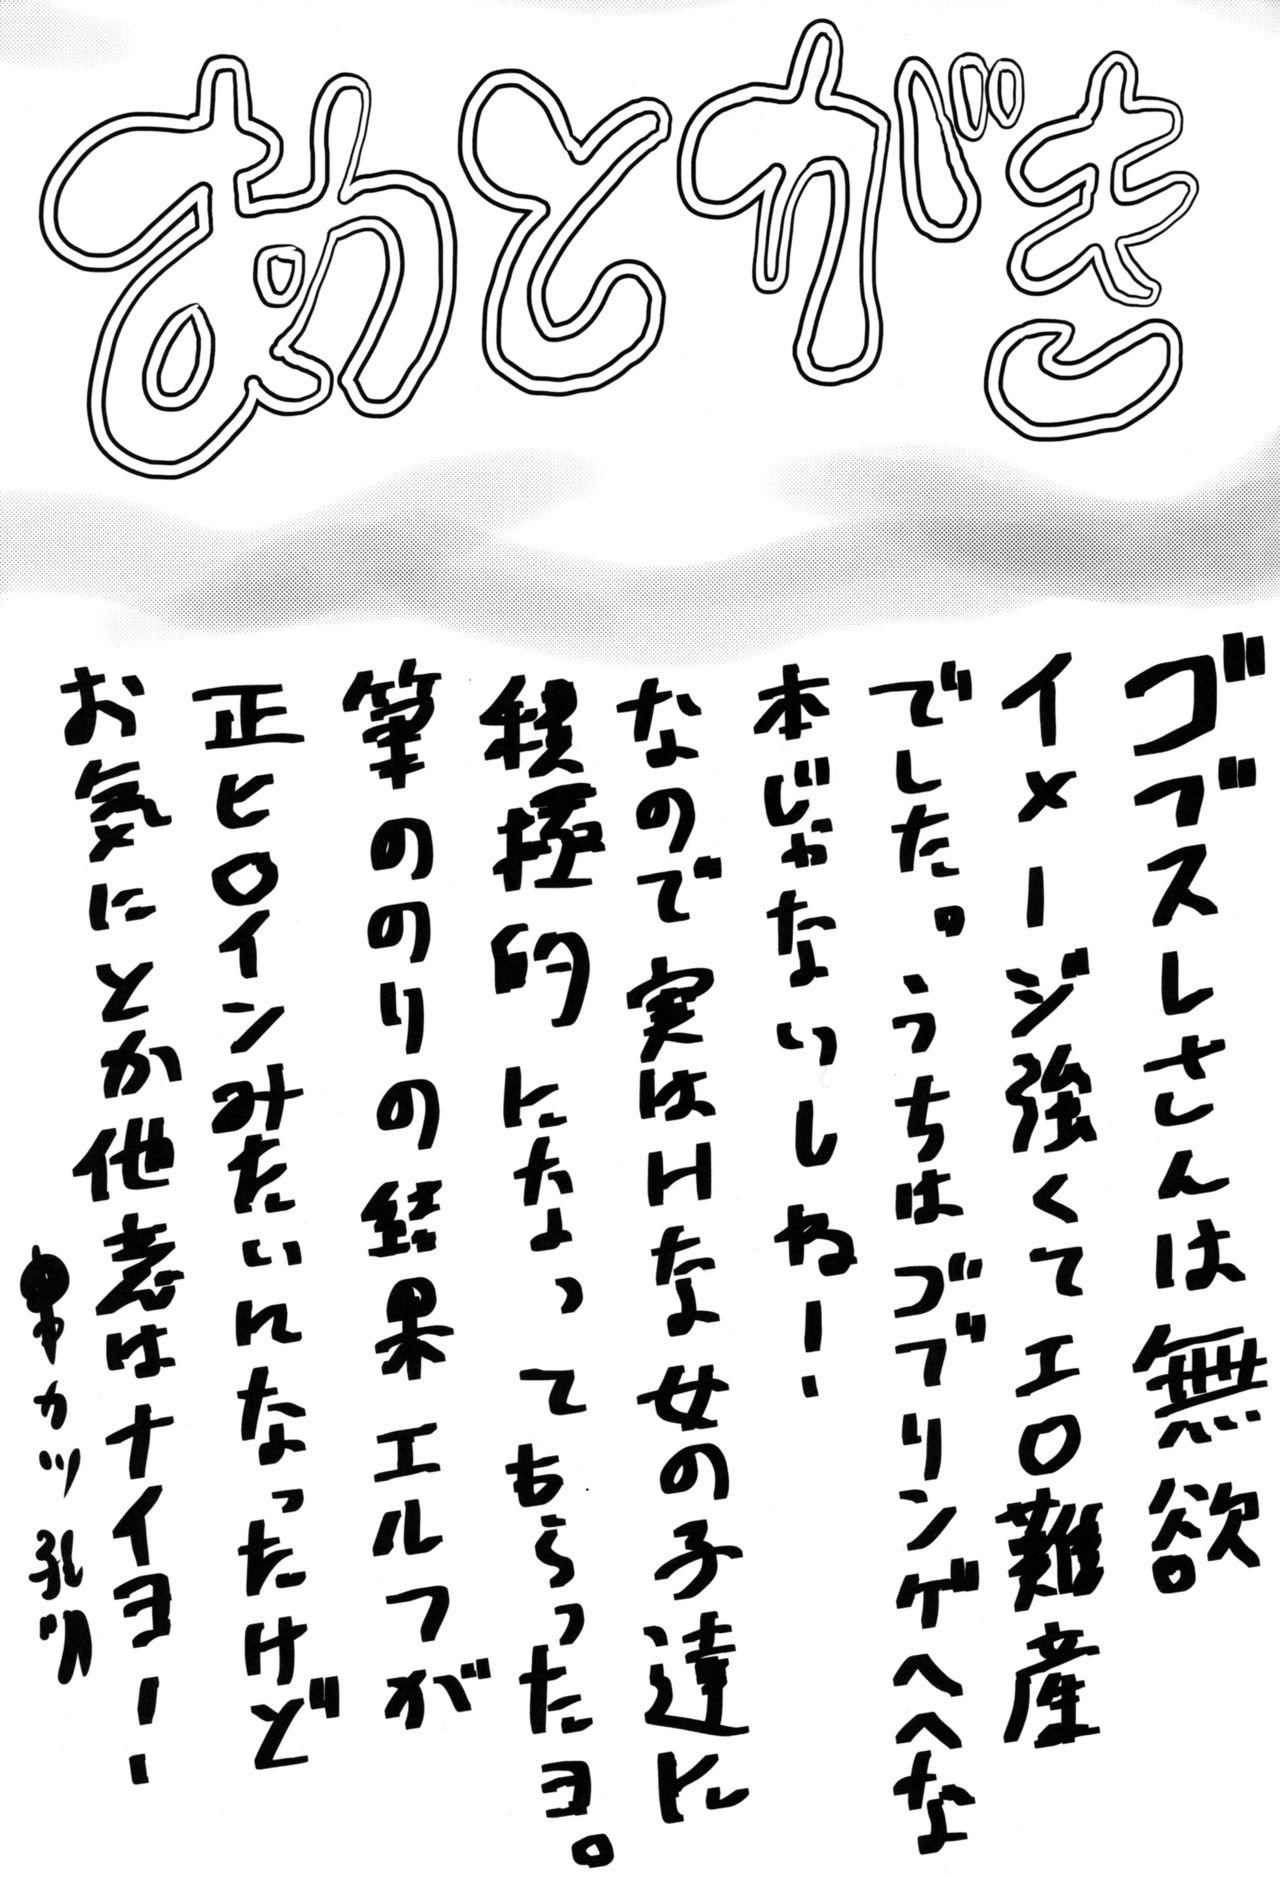 あとがき
ゴブスレさんは無欲
イメージ強くてエロ難産
でした。うちはゴブリンゲヘヘな
本じゃないしね!
なので実はHな女の子達に
積極的になってもらったヨ。
筆ののりの結果エルフが
正ヒロインみたいになったけど
お気にとか他意はナイヨーー
カツ